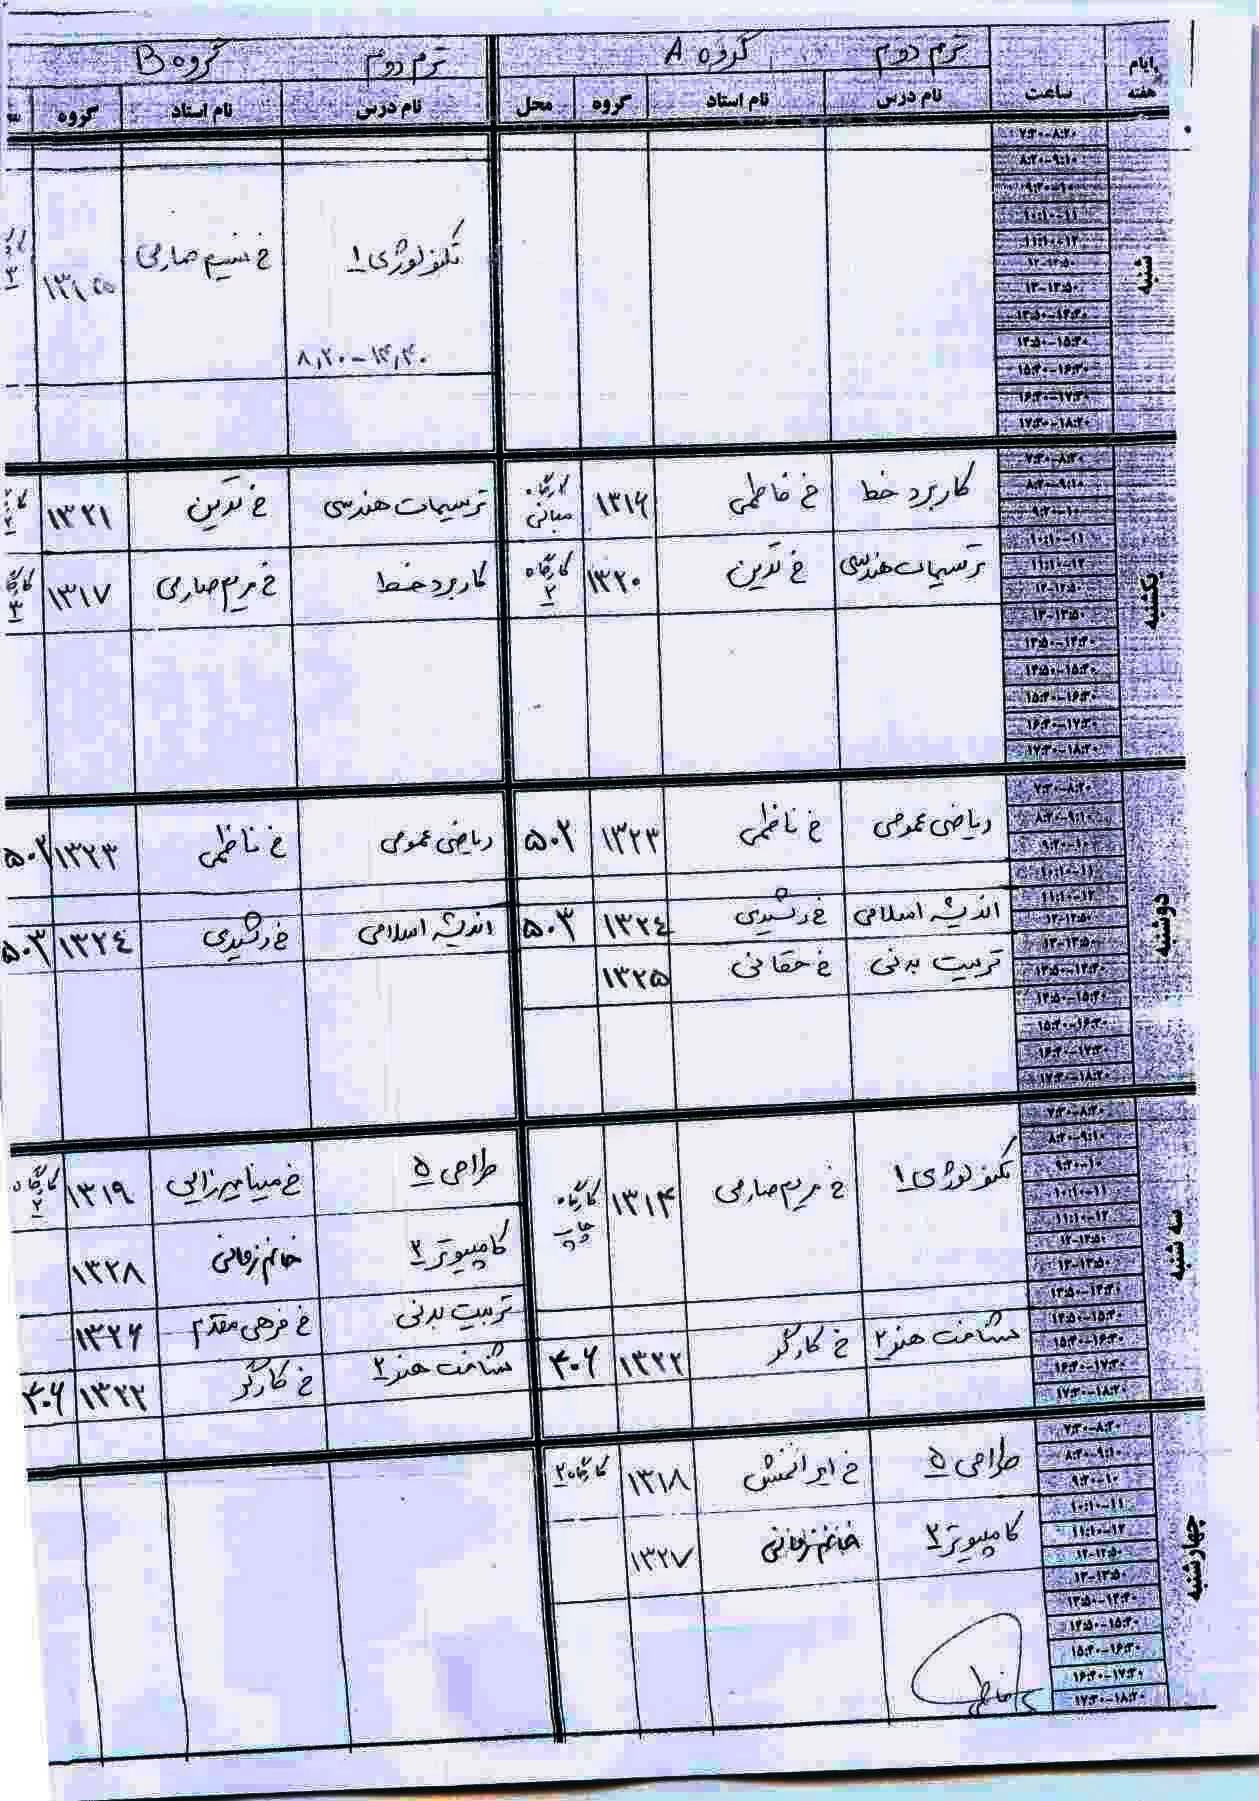 ایام هفته
ساعت
ترم دوم گروه A
ترم دوم گروه B
نام درس نام استاد گروه محل
نام درس نام استاد گروه
شنبه
۷:۳۰-۸:۲۰
۸:۲۰-۹:۱۰
۹:۲۰-۱۰
۱۰:۱۰-۱۱
۱۱:۱۰-۱۲
۱۲-۱۲:۵۰
۱۳-۱۳:۵۰
۱۳:۵۰-۱۴:۴۰
۱۴:۵۰-۱۵:۴۰
۱۵:۴۰-۱۶:۳۰
۱۶:۴۰-۱۷:۳۰
۱۷:۳۰-۱۸:۲۰
تکنولوژی ۱ خ نسیم صارمی
۸,۲۰-۱۴,۴۰
یکشنبه
کاربرد خط خ فاطمی ۱۳۱۶ کارگاه مبانی
ترسیمات هندسی خ تدین ۱۳۲۱
ترسیمات هندسی خ تدین ۱۳۲۰ کارگاه ۲
کاربرد خط خ مریم صارمی ۱۳۱۷ کارگاه
دوشنبه
ریاضی عمومی خ ناظمی ۱۳۲۳ ۵۰۲
ریاضی عمومی خ ناظمی ۱۳۲۳ ۵۰۲
اندیشه اسلامی خ رشیدی ۱۳۲۴ ۵۰۳
اندیشه اسلامی خ رشیدی ۱۳۲۴ ۵۰۳
تربیت بدنی خ حقانی ۱۳۲۵
سه شنبه
تکنولوژی ۱ خ مریم صارمی ۱۳۱۴ کارگاه چاپ
طراحی ۵ خ مینا میرزایی ۱۳۱۹ کارگاه ۲
کامپیوتر ۲ خانم زمانی ۱۳۲۸
تربیت بدنی خ فرهی مقدم ۱۳۲۶
شناخت هنر ۲ خ کارگر ۱۳۲۲ ۴۰۶
شناخت هنر ۲ خ کارگر ۱۳۲۲ ۴۰۶
چهارشنبه
طراحی ۵ خ ایرانمنش ۱۳۱۸ کارگاه ۲
کامپیوتر ۲ خانم زمانی ۱۳۲۷
فاطمی